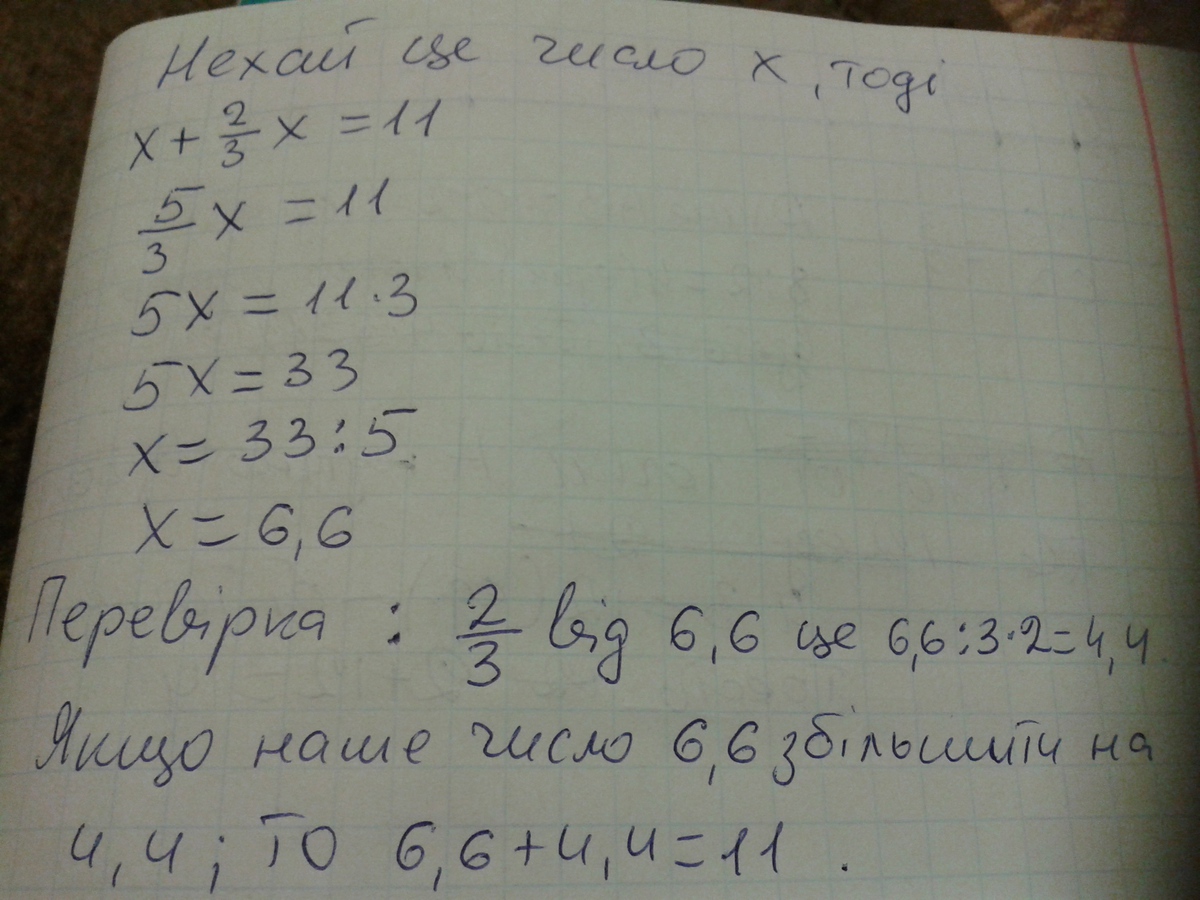 Нехай це число x, тоді
x + 2/3 x = 11
5/3 x = 11
5x = 11·3
5x = 33
x = 33:5
x = 6,6
Перевірка : 2/3 від 6,6 це 6,6:3·2=4,4.
Якщо наше число 6,6 збільшити на
4,4; то 6,6+4,4=11.